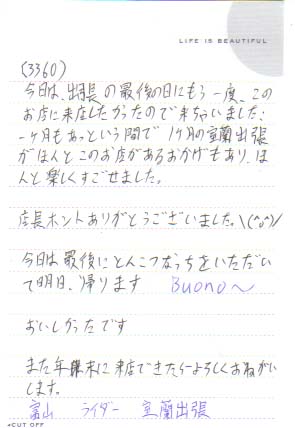 LIFE IS BEAUTIFUL
(3360)
今日は、出張の最後の日にもう一度、この
お店に来店したかったので来ちゃいました:
一ヶ月もあっという間で 1ヶ月の室蘭出張
がほんとこのお店があるおかげもあり、ほ
んと楽しくすごせました。
店長ホントありがとうございました。\(^o^)/
今日は最後にとんこつなっちをいただい
て明日、帰ります Buono〜
おいしかったです
また年末に来店できたらーよろしくおねがい
します。
富山 ライダー 室蘭出張
CUT OFF